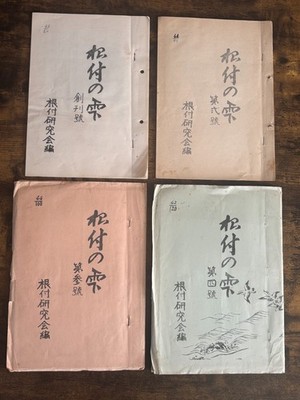 根付の雫
創刊號
根付研究会編
根付の雫
第弐號
根付研究会編
根付の雫
第参號
根付研究会編
根付の雫
第四號
根付研究会編